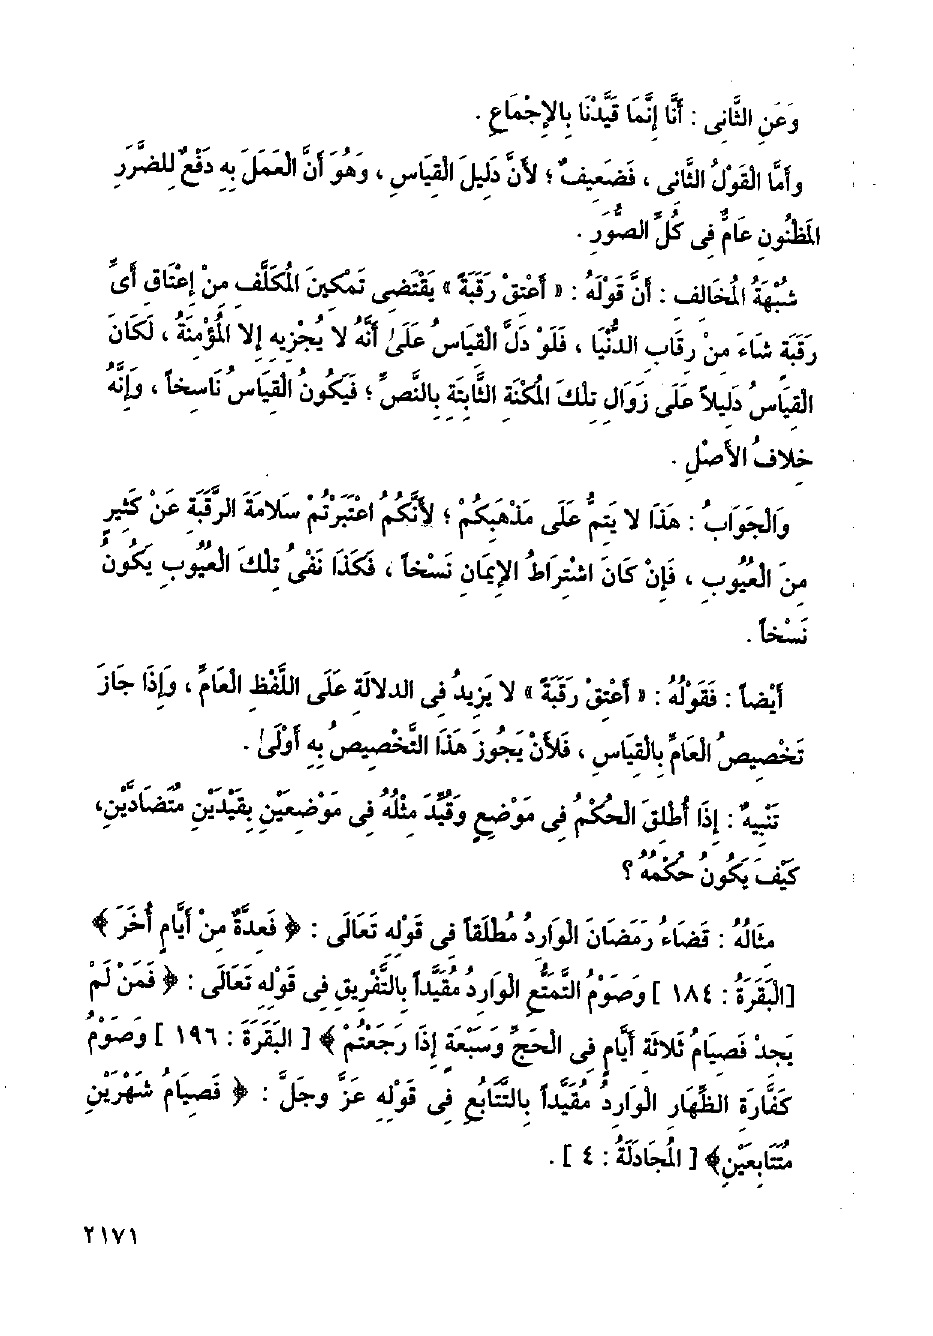 وَعَنِ الثَّانِى : أَنَّا إِنَّمَا قَيَّدْنَا بِالإِجْمَاعِ .
وَأَمَّا الْقَوْلُ الثَّانِى ، فَضَعِيفٌ ؛ لأَنَّ دَلِيلَ الْقِيَاسِ ، وَهُوَ أَنَّ الْعَمَلَ بِهِ دَفْعٌ لِلضَّرَرِ
المَظْنُونِ عَامٌّ فِى كُلِّ الصُّوَرِ .
شُبْهَةُ الْمُخَالِفِ : أَنَّ قَوْلَهُ : « أَعْتِقْ رَقَبَةً » يَقْتَضِى تَمْكِينَ الْمُكَلَّفِ مِنْ إِعْتَاقِ أَىِّ
رَقَبَةٍ شَاءَ مِنْ رِقَابِ الدُّنْيَا ، فَلَوْ دَلَّ الْقِيَاسُ عَلَى أَنَّهُ لا يُجْزِيهِ إِلا الْمُؤْمِنَةُ ، لَكَانَ
الْقِيَاسُ دَلِيلاً عَلَى زَوَالِ تِلْكَ الْمُكْنَةِ الثَّابِتَةِ بِالنَّصِّ ؛ فَيَكُونُ الْقِيَاسُ نَاسِخاً ، وَإِنَّهُ
خِلافُ الأَصْلِ .
وَالْجَوَابُ : هَذَا لا يَتِمُّ عَلَى مَذْهَبِكُمْ ؛ لأَنَّكُمُ اعْتَبَرْتُمْ سَلامَةَ الرَّقَبَةِ عَنْ كَثِيرٍ
مِنَ الْعُيُوبِ ، فَإِنْ كَانَ اشْتِرَاطُ الإِيمَانِ نَسْخاً ، فَكَذَا نَفْىُ تِلْكَ الْعُيُوبِ يَكُونُ
نَسْخاً .
أَيْضاً : فَقَوْلُهُ : « أَعْتِقْ رَقَبَةً » لا يَزِيدُ فِى الدلالَةِ عَلَى اللَّفْظِ الْعَامِّ ، وَإِذَا جَازَ
تَخْصِيصُ الْعَامِّ بِالْقِيَاسِ ، فَلأَنْ يَجُوزَ هَذَا التَّخْصِيصُ بِهِ أَوْلَى .
تَنْبِيهٌ : إِذَا أُطْلِقَ الْحُكْمُ فِى مَوْضِعٍ وَقُيِّدَ مِثْلُهُ فِى مَوْضِعَيْنِ بِقَيْدَيْنِ مُتَضَادَّيْنِ،
كَيْفَ يَكُونُ حُكْمُهُ ؟
مِثَالُهُ : قَضَاءُ رَمَضَانَ الْوَارِدُ مُطْلَقاً فِى قَوْلِهِ تَعَالَى : ﴿ فَعِدَّةٌ مِنْ أَيَّامٍ أُخَرَ ﴾
[الْبَقَرَةُ : ١٨٤ ] وَصَوْمُ التَّمَتُّعِ الْوَارِدُ مُقَيَّداً بِالتَّفْرِيقِ فِى قَوْلِهِ تَعَالَى : ﴿ فَمَنْ لَمْ
يَجِدْ فَصِيَامُ ثَلاثَةِ أَيَّامٍ فِى الْحَجِّ وَسَبْعَةٍ إِذَا رَجَعْتُمْ ﴾ [ الْبَقَرَةَ : ١٩٦ ] وَصَوْمُ
كَفَّارَةِ الظِّهَارِ الْوَارِدُ مُقَيَّداً بِالتَّتَابُعِ فِى قَوْلِهِ عَزَّ وجَلَّ : ﴿ فَصِيَامُ شَهْرَيْنِ
مُتَتَابِعَيْنِ﴾ [ الْمُجَادَلَةُ : ٤ ] .
٢١٧١